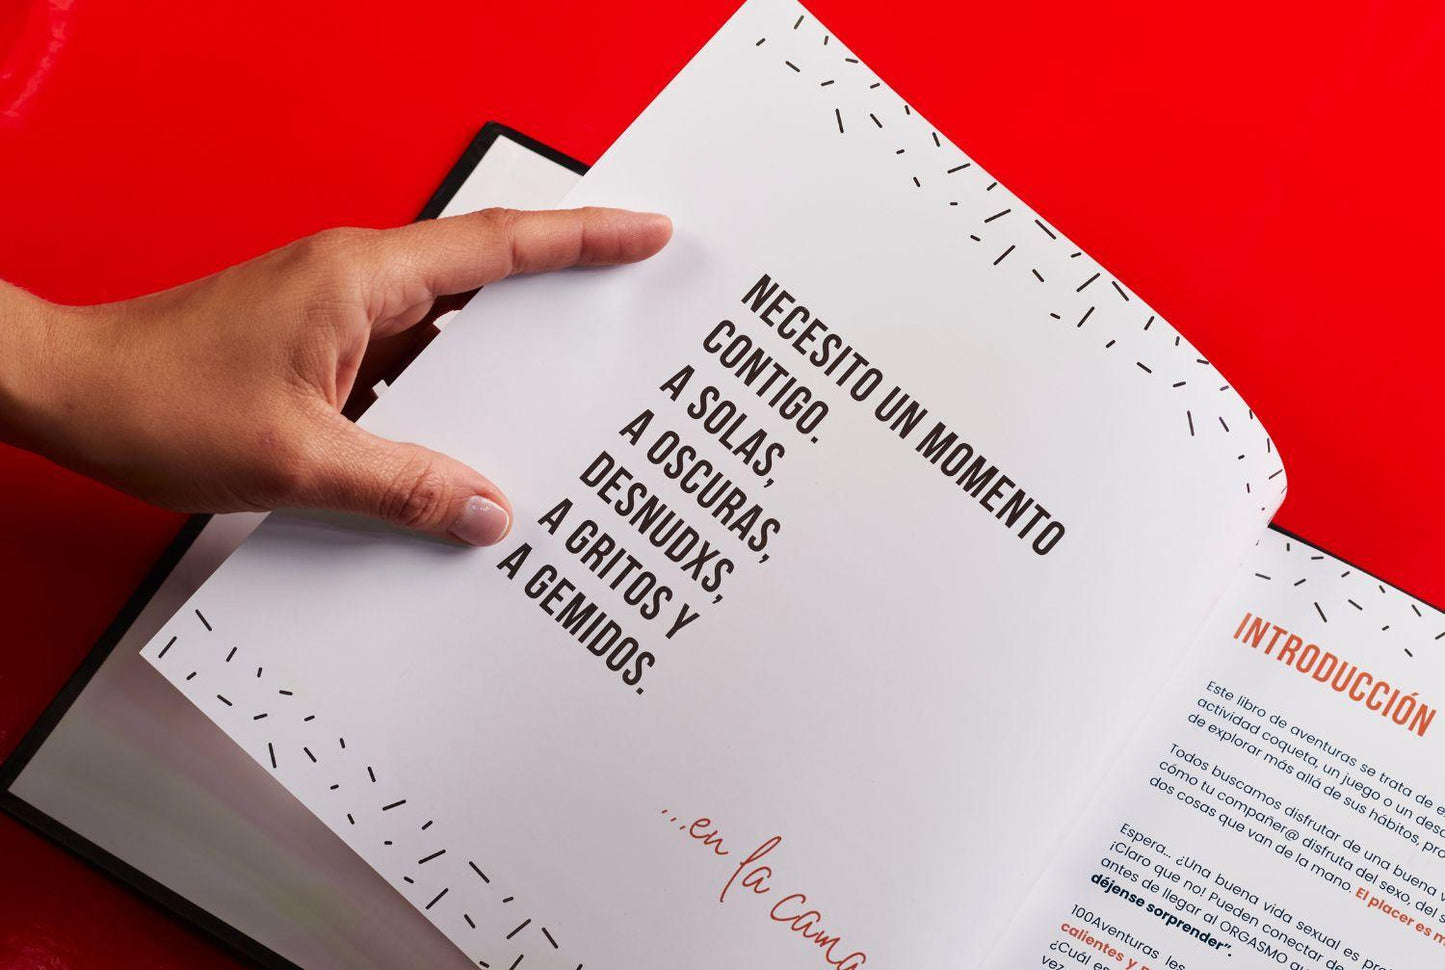 NECESITO UN MOMENTO
CONTIGO.
A SOLAS,
A OSCURAS,
DESNUDXS,
A GRITOS Y
A GEMIDOS.
...en la cama
INTRODUCCIÓN
Este libro de aventuras se trata de
actividad coqueta, un juego o un
de explorar más allá de sus hábitos,
Todos buscamos disfrutar de una buena
cómo tu compañer@ disfruta del sexo, del
dos cosas que van de la mano. El placer es
Espera... ¿Una buena vida sexual es
¡Claro que no! Pueden conectar de
antes de llegar al ORGASMO
déjense sorprender".
100Aventuras les
calientes y
¿Cuál es
vez